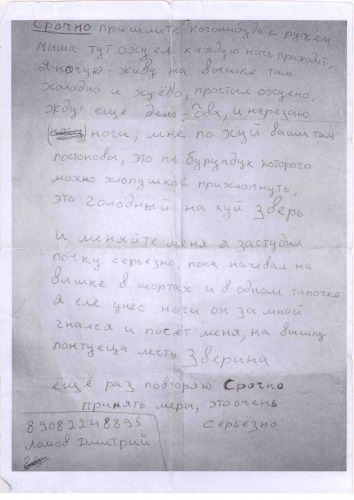 Срочно пришлите кого нибудь с ружьем
миша тут ахуел каждую ночь приходит,
я ночую-живу на вышке там
холодно и хуёво, простыл ахуено,
жду ещё день-два, и нарезаю
ноги, мне по хуй ваши там
постановы, это не бурундук которого
можно хлопушкой прихлопнуть,
это голодный на хуй Зверь
И меняйте меня я застудил
почку серьезно, пока начевал на
вышке в шортах и в одном тапочке
я еле унес ноги он за мной
гнался и пасёт меня, на вышку
понтуеца лесть Зверина
ещё раз повторяю Срочно
принять меры, это очень
серьезно
89082248895
Ламов Дмитрий